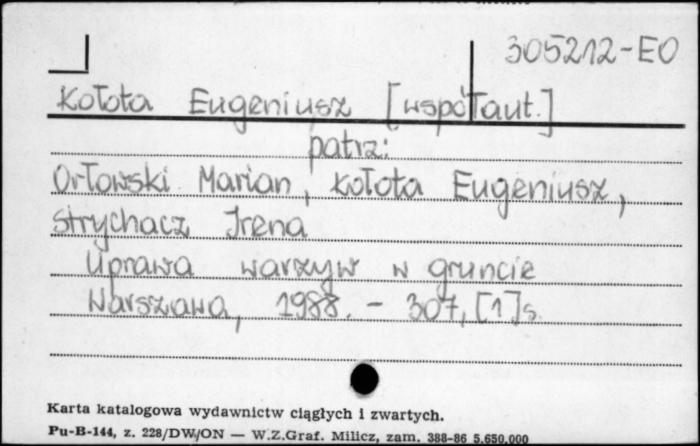 305212-EO
Kołota Eugeniusz [współaut.]
patrz:
Orłowski Marian, Kołota Eugeniusz,
Strychacz Irena
Uprawa warzyw w gruncie
Warszawa, 1988. - 307, [1] s.
Karta katalogowa wydawnictw ciągłych i zwartych.
Pu-B-144, z. 228/DW/ON — W.Z.Graf. Milicz, zam. 388-86 5.650.000